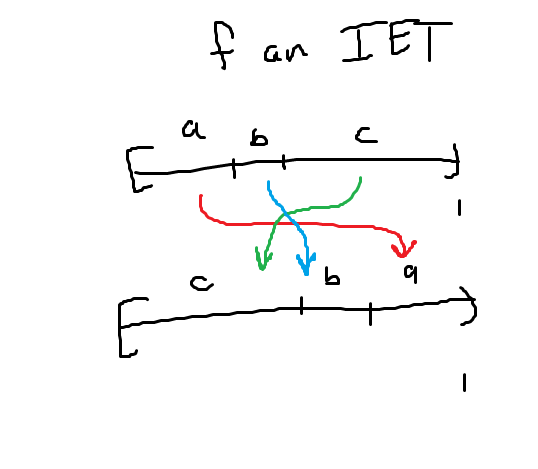 f an IET
a b c
1
c b a
1